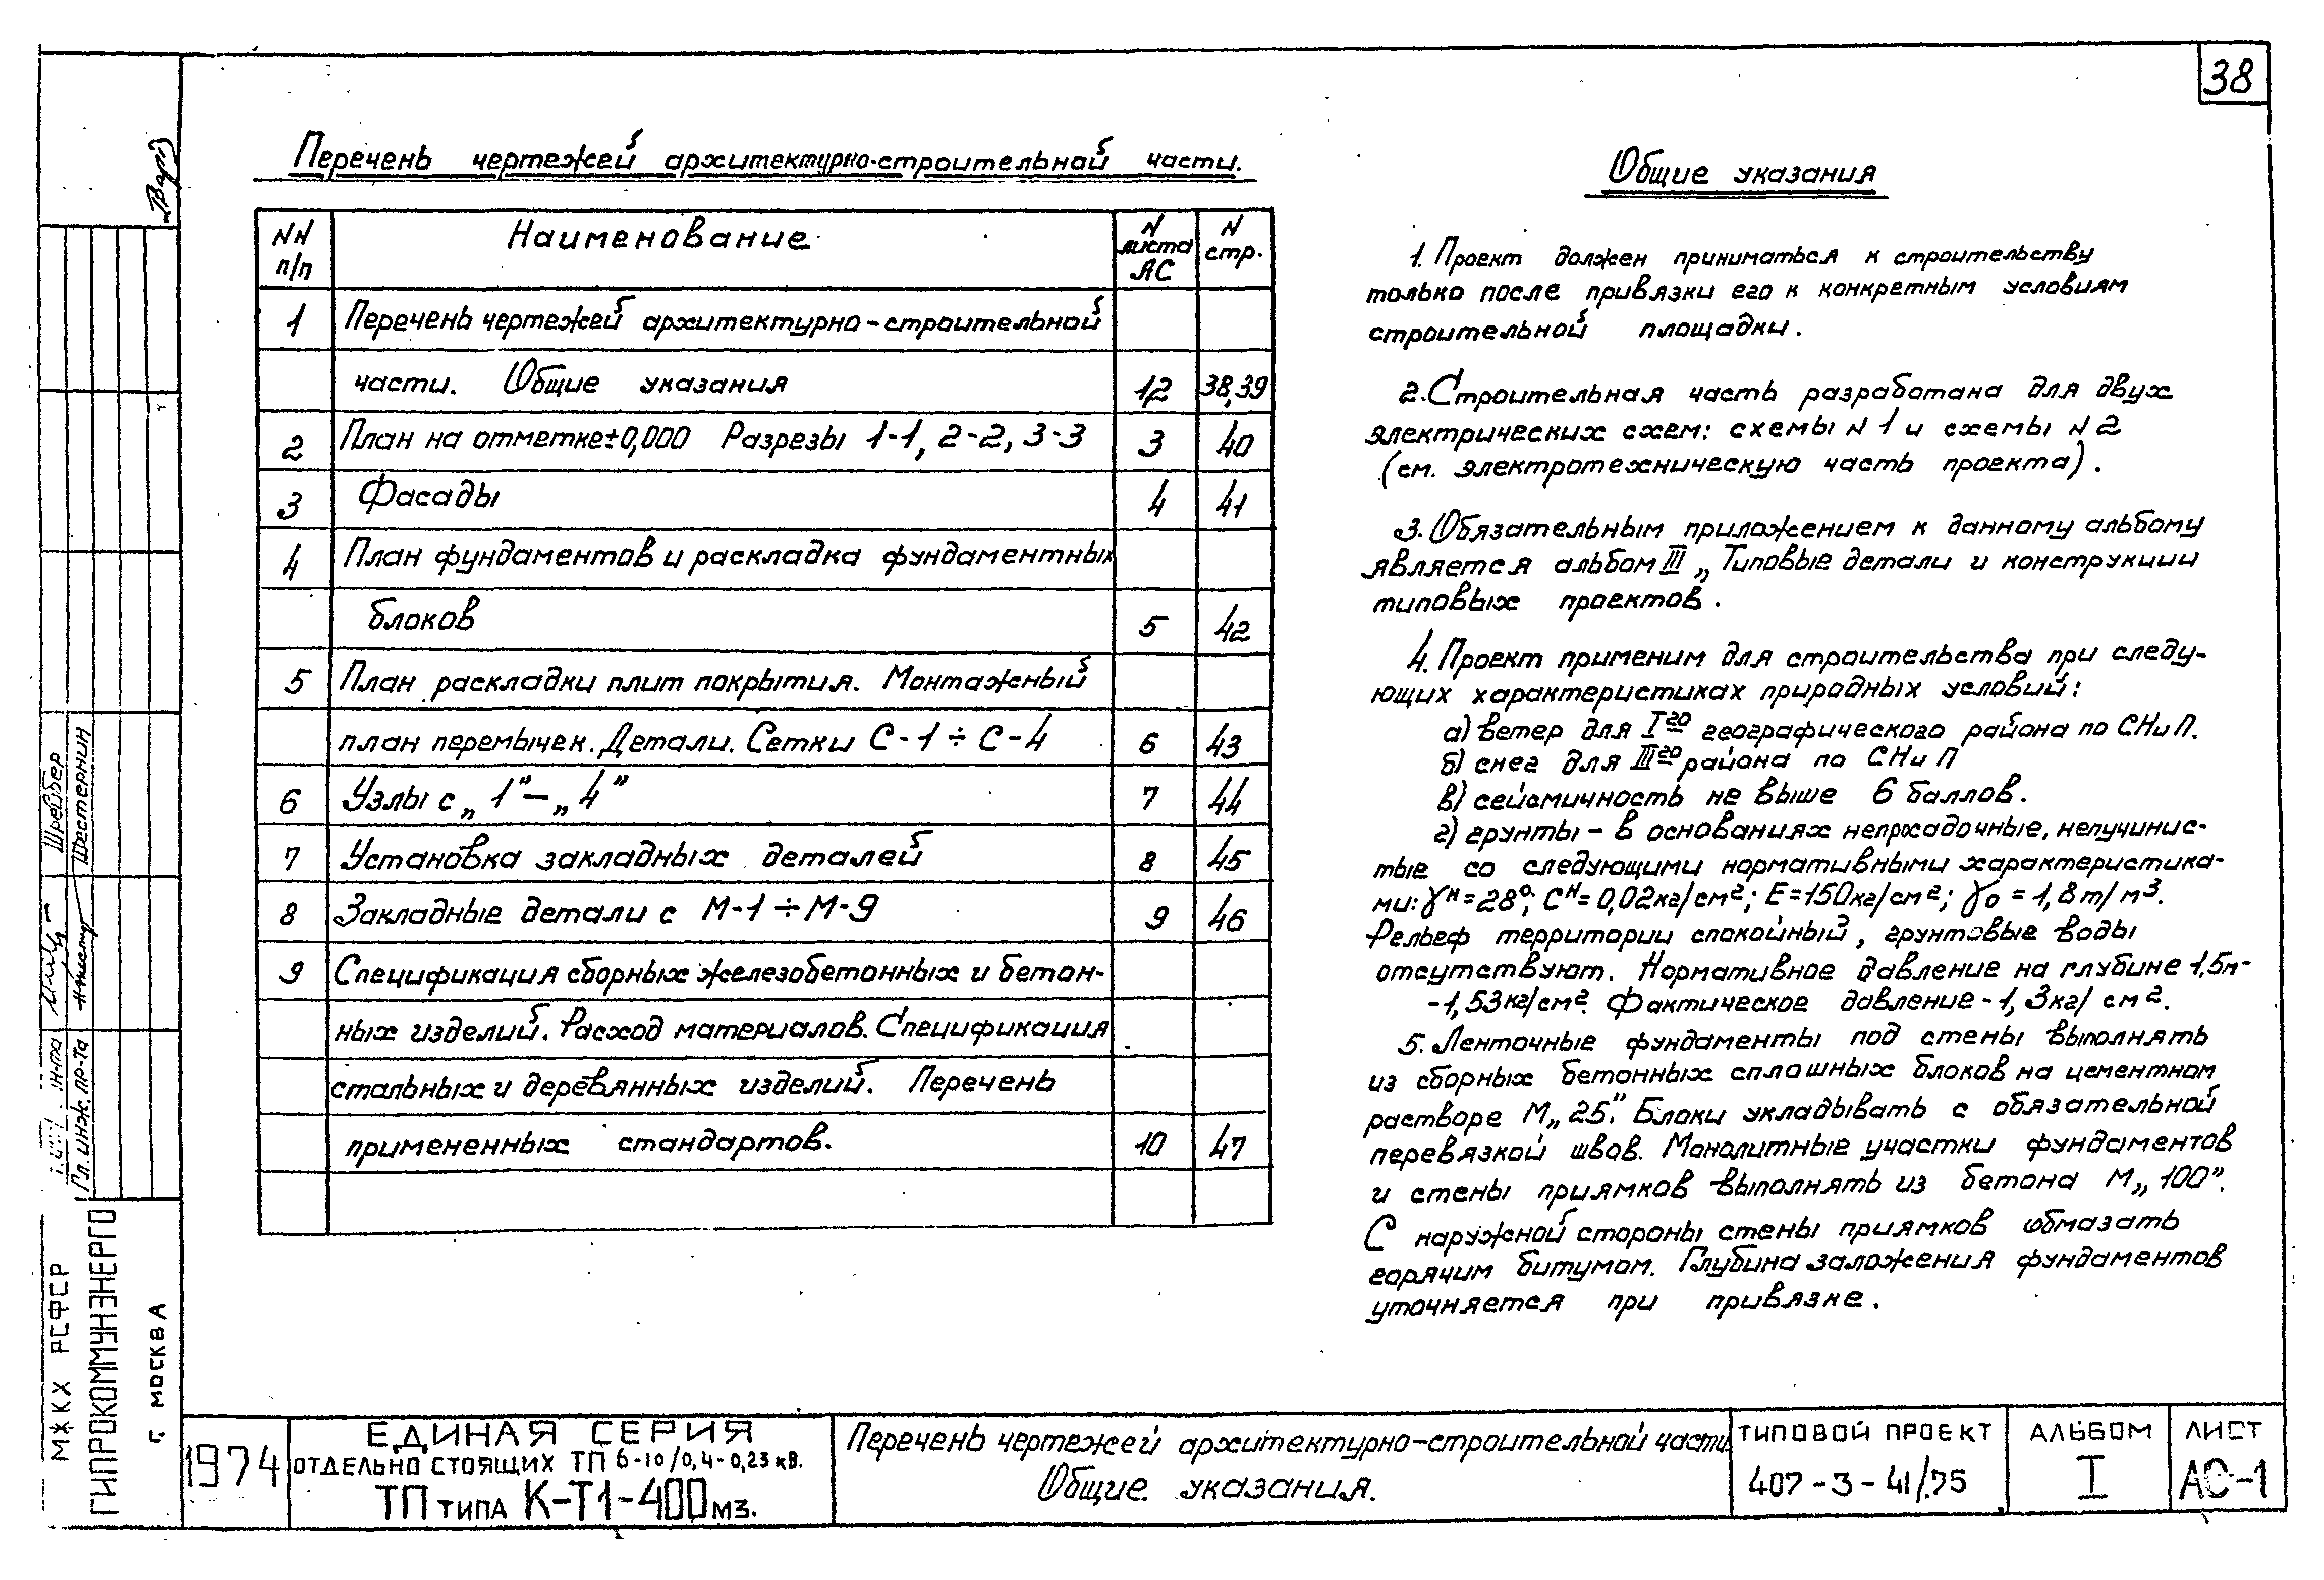 38
Перечень чертежей архитектурно-строительной части.
NN п/п
Наименование
N листа АС
N стр.
1 Перечень чертежей архитектурно-строительной
части. Общие указания 1,2 38,39
2 План на отметке ±0,000 Разрезы 1-1, 2-2, 3-3 3 40
3 Фасады 4 41
4 План фундаментов и раскладка фундаментных
блоков 5 42
5 План раскладки плит покрытия. Монтажный
план перемычек. Детали. Сетки С-1÷С-4 6 43
6 Узлы с „1”—„4” 7 44
7 Установка закладных деталей 8 45
8 Закладные детали с М-1÷М-9 9 46
9 Спецификация сборных железобетонных и бетон-
ных изделий. Расход материалов. Спецификация
стальных и деревянных изделий. Перечень
примененных стандартов. 10 47
Общие указания
1. Проект должен приниматься к строительству
только после привязки его к конкретным условиям
строительной площадки.
2. Строительная часть разработана для двух
электрических схем: схемы N 1 и схемы N 2
(см. электротехническую часть проекта).
3. Обязательным приложением к данному альбому
является альбом III „Типовые детали и конструкции
типовых проектов.
4. Проект применим для строительства при следу-
ющих характеристиках природных условий:
а) ветер для Iго географического района по СНиП.
б) снег для IIIго района по СНиП
в) сейсмичность не выше 6 баллов.
г) грунты - в основаниях непросадочные, непучинис-
тые со следующими нормативными характеристика-
ми: γн=28°; Сн=0,02кг/см²; Е=150кг/см²; γо=1,8т/м³.
Рельеф территории спокойный, грунтовые воды
отсутствуют. Нормативное давление на глубине 1,5м-
-1,53кг/см². Фактическое давление-1,3кг/см².
5. Ленточные фундаменты под стены выполнять
из сборных бетонных сплошных блоков на цементном
растворе М„25”. Блоки укладывать с обязательной
перевязкой швов. Монолитные участки фундаментов
и стены приямков выполнять из бетона М„100”.
С наружной стороны стены приямков обмазать
горячим битумом. Глубина заложения фундаментов
уточняется при привязке.
Шрейбер
Шестернин
Гл. инж. пр-та
МЖКХ РСФСР
ГИПРОКОММУНЭНЕРГО
г. МОСКВА
1974
ЕДИНАЯ СЕРИЯ
ОТДЕЛЬНО СТОЯЩИХ ТП 6-10/0,4-0,23 кВ.
ТП ТИПА К-Т1-400 мз.
Перечень чертежей архитектурно-строительной части.
Общие указания.
ТИПОВОЙ ПРОЕКТ
407-3-41/75
АЛЬБОМ
I
ЛИСТ
АС-1